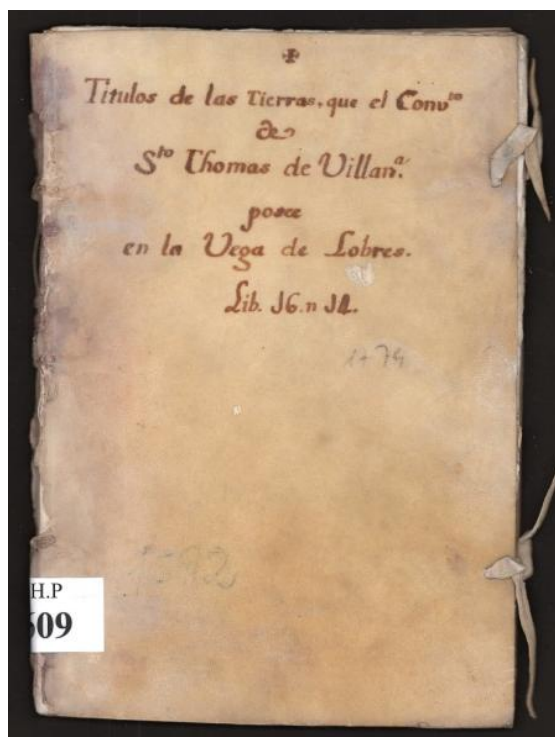 ✠
Titulos de las Tierras, que el Convto
de
Sto Thomas de Villana.
posee
en la Vega de Lobres.
Lib. 16. n 14.
1592
H.P
609